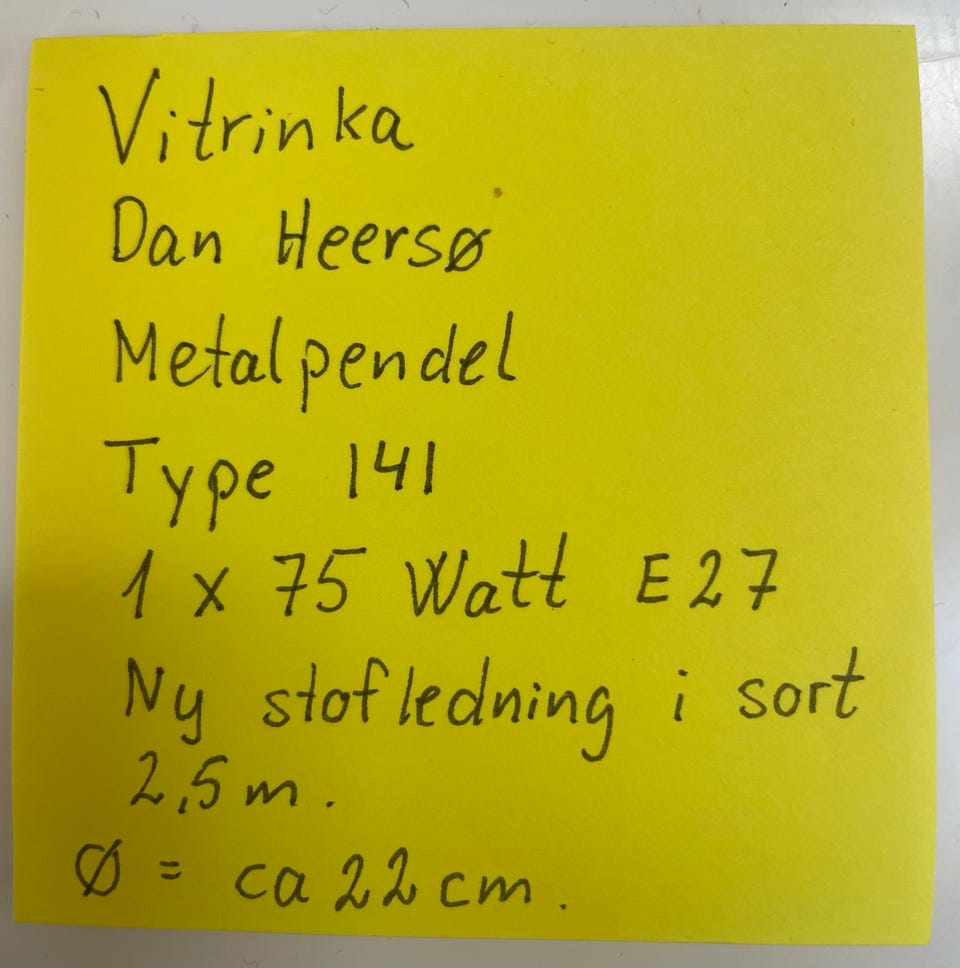 Vitrinka
Dan Heersø
Metalpendel
Type 141
1 x 75 Watt E27
Ny stofledning i sort
2,5 m.
Ø = ca 22 cm.